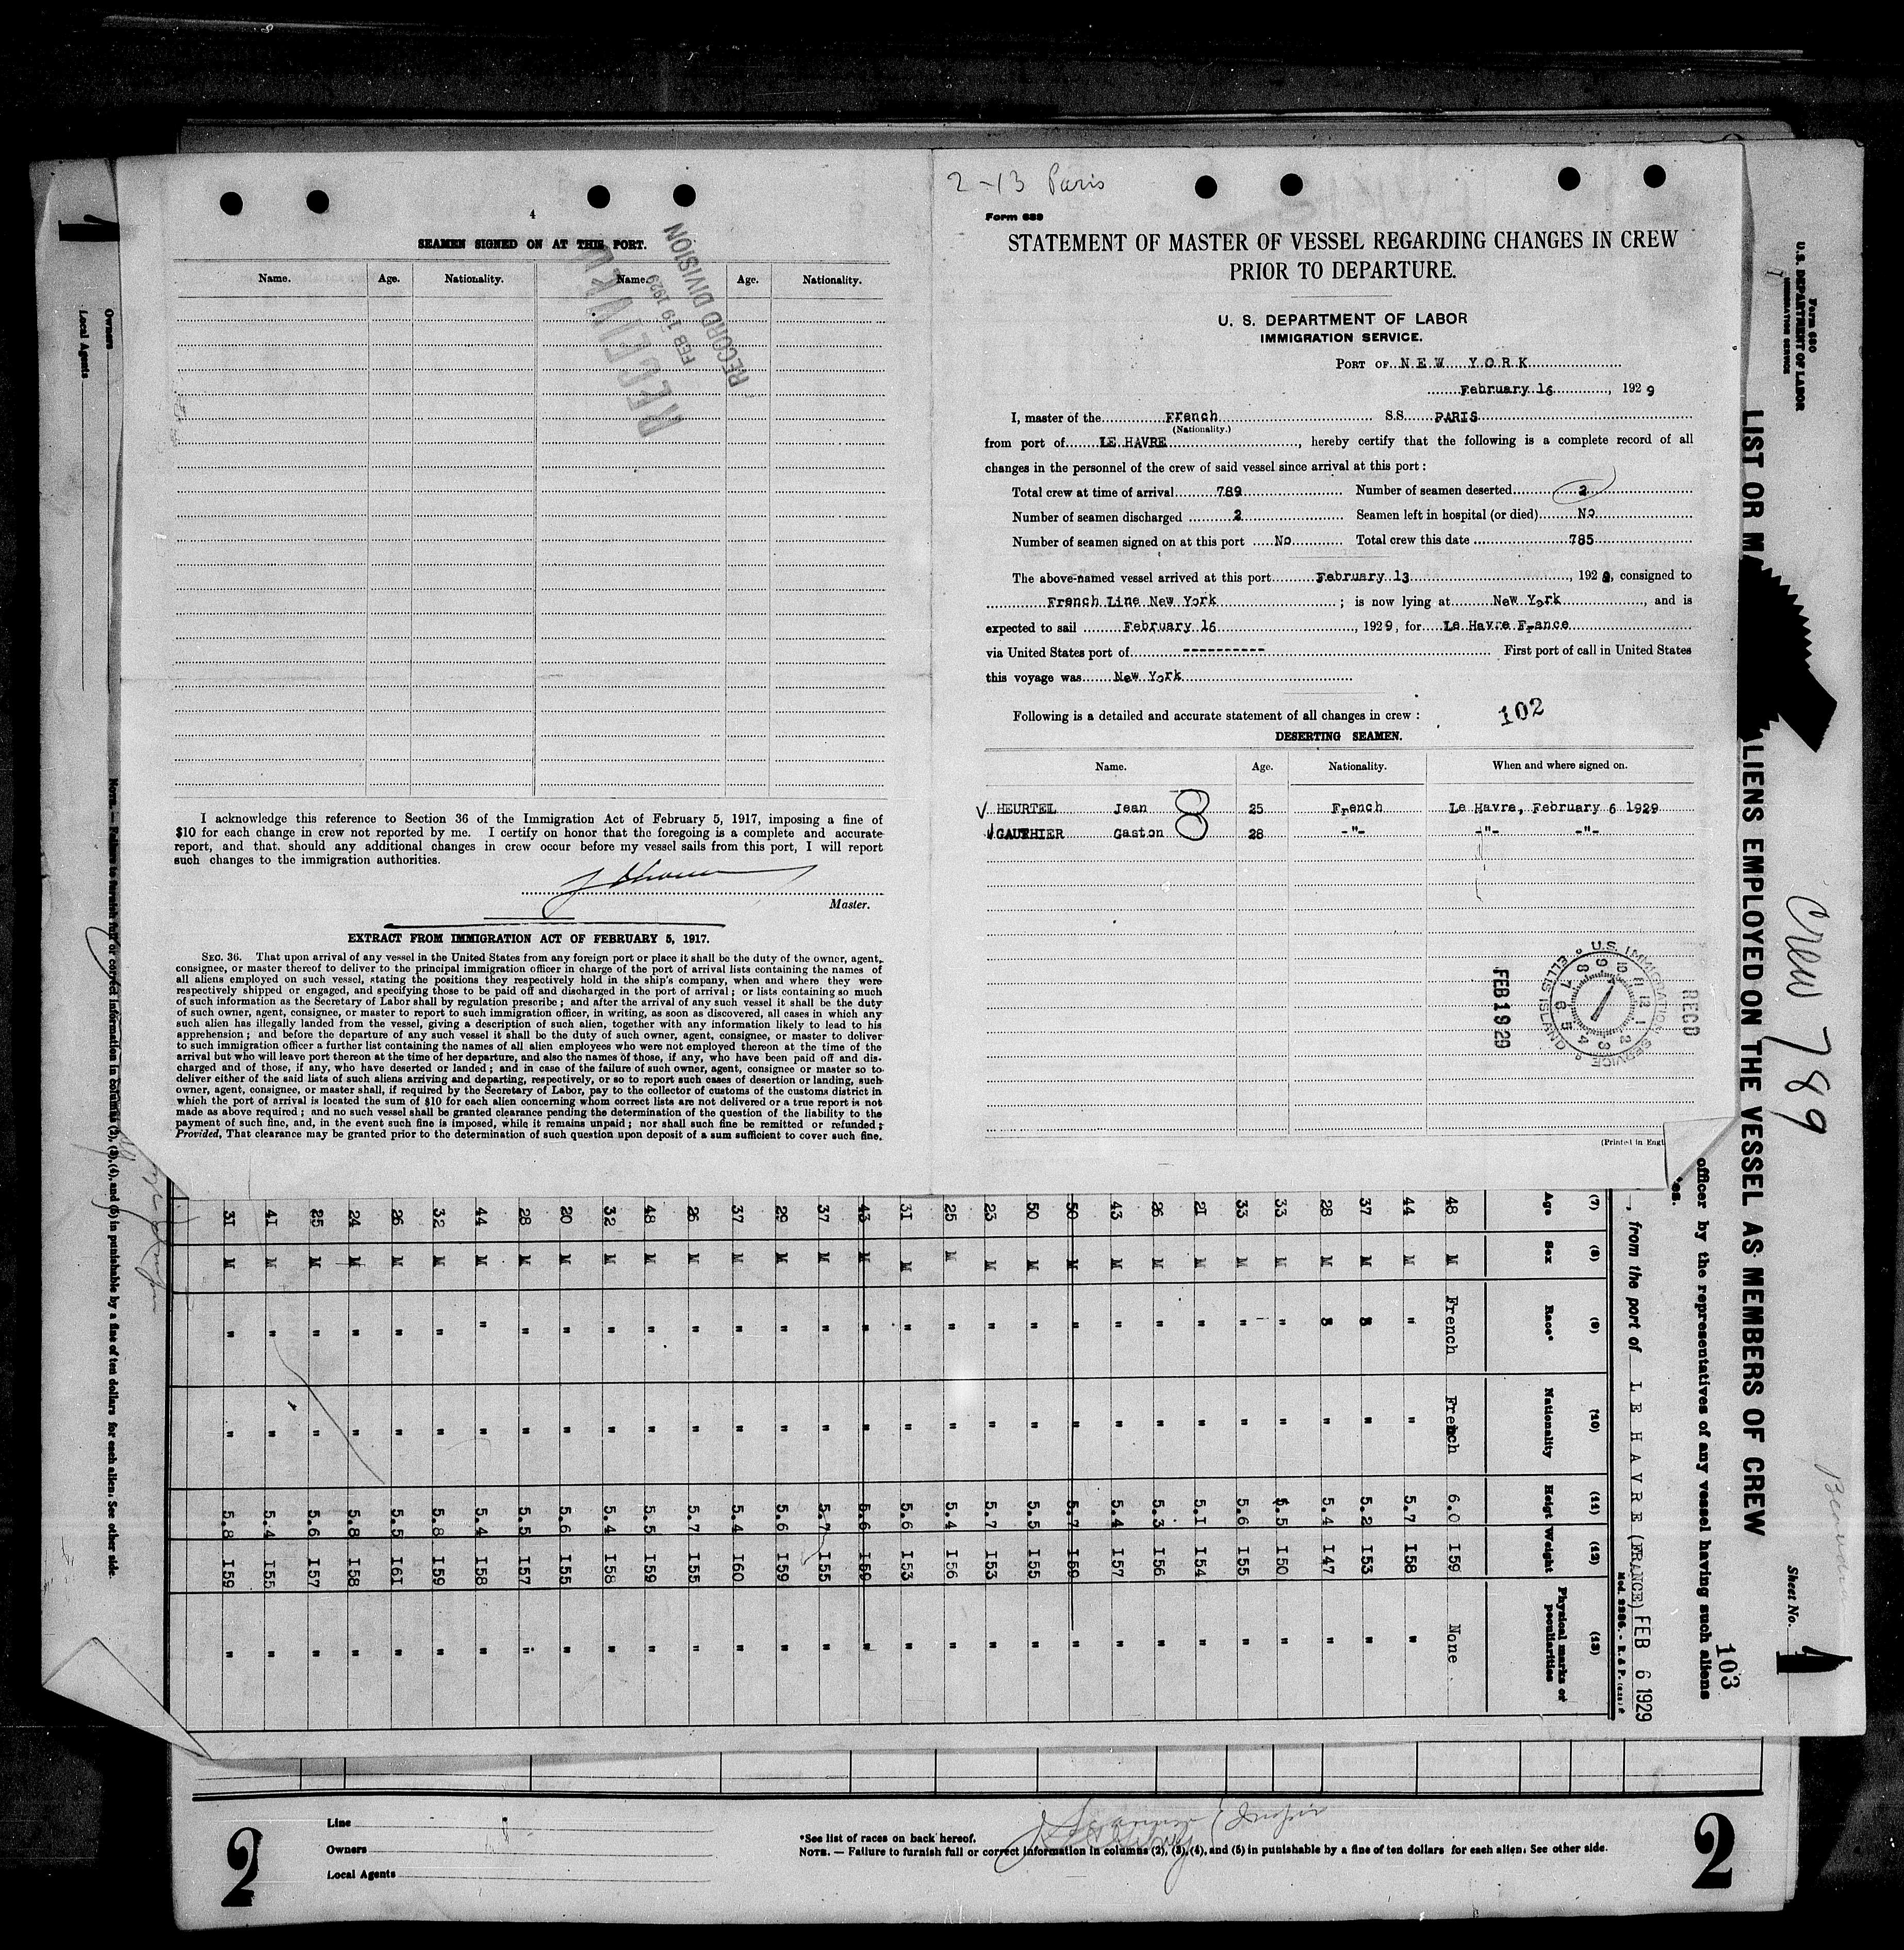 1
Owners
Local Agents
NOTE. — Failure to furnish full or correct information in columns (2), (3), (4), and (5) in punishable by a fine of ten dollars for each alien. See other side.
4
SEAMEN SIGNED ON AT THIS PORT.
Name. Age. Nationality. Name. Age. Nationality.
RECEIVED
FEB 19 1929
RECORD DIVISION
I acknowledge this reference to Section 36 of the Immigration Act of February 5, 1917, imposing a fine of
$10 for each change in crew not reported by me. I certify on honor that the foregoing is a complete and accurate
report, and that should any additional changes in crew occur before my vessel sails from this port, I will report
such changes to the immigration authorities.
Master.
EXTRACT FROM IMMIGRATION ACT OF FEBRUARY 5, 1917.
SEC. 36. That upon arrival of any vessel in the United States from any foreign port or place it shall be the duty of the owner, agent,
consignee, or master thereof to deliver to the principal immigration officer in charge of the port of arrival lists containing the names of
all aliens employed on such vessel, stating the positions they respectively hold in the ship's company, when and where they were
respectively shipped or engaged, and specifying those to be paid off and discharged in the port of arrival; or lists containing so much
of such information as the Secretary of Labor shall by regulation prescribe; and after the arrival of any such vessel it shall be the duty
of such owner, agent, consignee, or master to report to such immigration officer, in writing, as soon as discovered, all cases in which any
such alien has illegally landed from the vessel, giving a description of such alien, together with any information likely to lead to his
apprehension; and before the departure of any such vessel it shall be the duty of such owner, agent, consignee, or master to deliver
to such immigration officer a further list containing the names of all alien employees who were not employed thereon at the time of the
arrival but who will leave port thereon at the time of her departure, and also the names of those, if any, who have been paid off and dis-
charged and of those, if any, who have deserted or landed; and in case of the failure of such owner, agent, consignee or master so to
deliver either of the said lists of such aliens arriving and departing, respectively, or so to report such cases of desertion or landing, such
owner, agent, consignee, or master shall, if required by the Secretary of Labor, pay to the collector of customs of the customs district in
which the port of arrival is located the sum of $10 for each alien concerning whom correct lists are not delivered or a true report is not
made as above required; and no such vessel shall be granted clearance pending the determination of the question of the liability to the
payment of such fine, and, in the event such fine is imposed, while it remains unpaid; nor shall such fine be remitted or refunded;
Provided, That clearance may be granted prior to the determination of such question upon deposit of a sum sufficient to cover such fine.
2-13 Paris
Form 689
STATEMENT OF MASTER OF VESSEL REGARDING CHANGES IN CREW
PRIOR TO DEPARTURE.
U. S. DEPARTMENT OF LABOR
IMMIGRATION SERVICE.
PORT OF NEW YORK
February 16, 1929
I, master of the French S.S. PARIS
(Nationality.)
from port of LE HAVRE, hereby certify that the following is a complete record of all
changes in the personnel of the crew of said vessel since arrival at this port:
Total crew at time of arrival 789 Number of seamen deserted 2
Number of seamen discharged 2 Seamen left in hospital (or died) No
Number of seamen signed on at this port No Total crew this date 785
The above-named vessel arrived at this port February 13, 1929, consigned to
French Line New York; is now lying at New York, and is
expected to sail February 16, 1929, for Le Havre France
via United States port of ----------- First port of call in United States
this voyage was New York
Following is a detailed and accurate statement of all changes in crew: 102
DESERTING SEAMEN.
Name. Age. Nationality. When and where signed on.
HEURTEL Jean 8 25 French Le Havre, February 6 1929
GAUTHIER Gaston 8 28 -"- -"- -"-
FEB 19 29
U.S. IMMIGRATION SERVICE ELLIS ISLAND
8 9 10 11 12 1 2 3 4 5 6 7
RECD
(Printed in Engl
Form 680
U.S. DEPARTMENT OF LABOR
IMMIGRATION SERVICE
LIST OR MA ALIENS EMPLOYED ON THE VESSEL AS MEMBERS OF CREW
Crew 789
Sheet No. 1
103
officer by the representatives of any vessel having such aliens
, from the port of LE HAVRE (FRANCE) FEB 6 1929
Mod. 2286. - R. & P.
(7) (8) (9) (10) (11) (12) (13)
Age Sex Race* Nationality Heigt Weight Physical marks or peculiarities
48 M French French 6.0 I59 None
44 M " " 5.7 I58 "
37 M " " 5.2 I53 "
28 M " " 5.4 I47 "
33 M " " 5.5 I50 "
33 M " " 5.6 I55 "
2I M " " 5.I I54 "
26 M " " 5.3 I56 "
43 M " " 5.4 I57 "
50 M " " 5.7 I59 "
50 M " " 5.5 I55 "
23 M " " 5.7 I53 "
25 M " " 5.4 I56 "
3I M " " 5.6 I53 "
43 M " " 5.6 I59 "
37 M " " 5.7 I55 "
29 M " " 5.6 I59 "
37 M " " 5.4 I60 "
26 M " " 5.7 I55 "
48 M " " 5.5 I59 "
32 M " " 5.4 I58 "
20 M " " 5.6 I55 "
28 M " " 5.5 I57 "
44 M " " 5.4 I58 "
32 M " " 5.8 I59 "
26 M " " 5.5 I6I "
24 M " " 5.8 I58 "
25 M " " 5.6 I57 "
4I M " " 5.4 I55 "
3I M " " 5.8 I59 "
2
Line
Owners
Local Agents
*See list of races on back hereof.
NOTE. — Failure to furnish full or correct information in columns (2), (3), (4), and (5) in punishable by a fine of ten dollars for each alien. See other side.
2